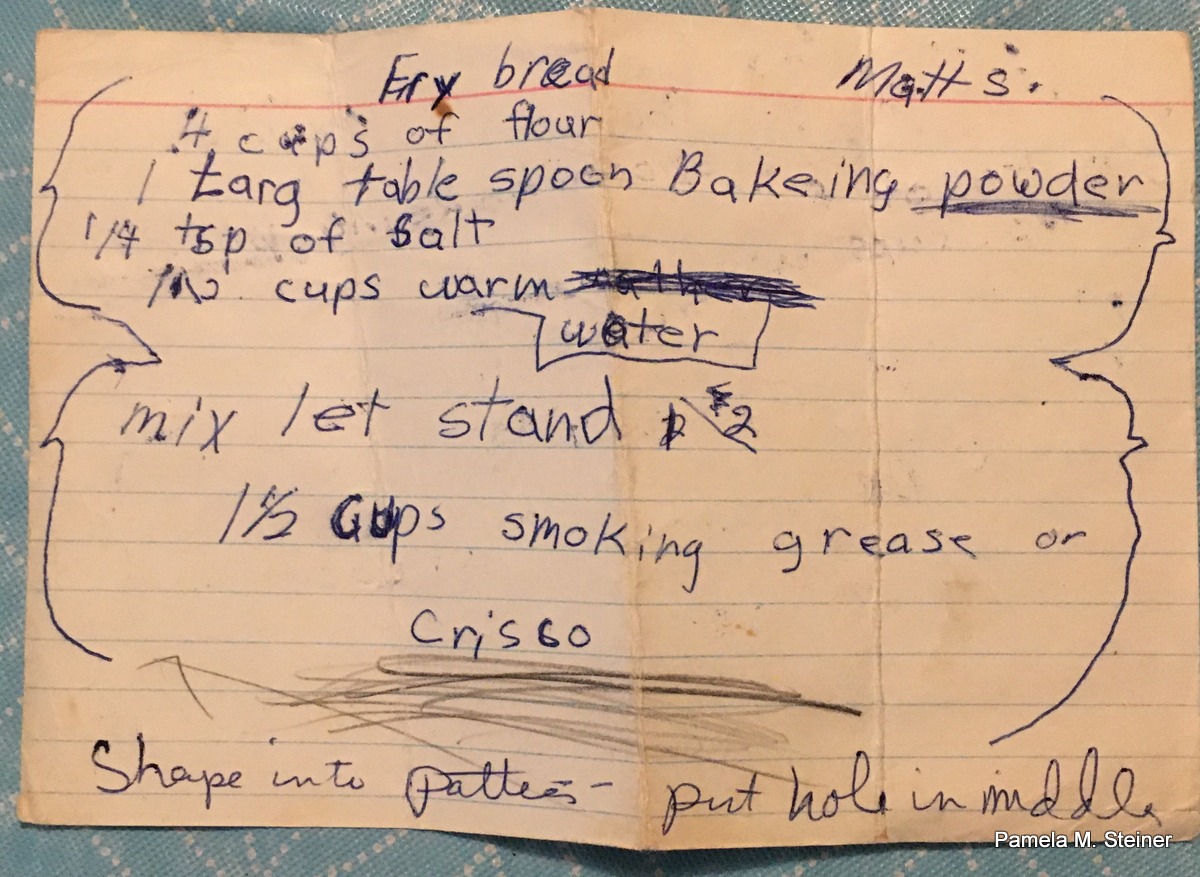 Fry bread Matts.
4 cups of flour
1 Larg table spoon Bakeing powder
1/4 tsp of Salt
cups warm
water
mix let stand
1 1/2 Cups smoking grease or
Crisco
Shape into patties - put hole in middle
Pamela M. Steiner